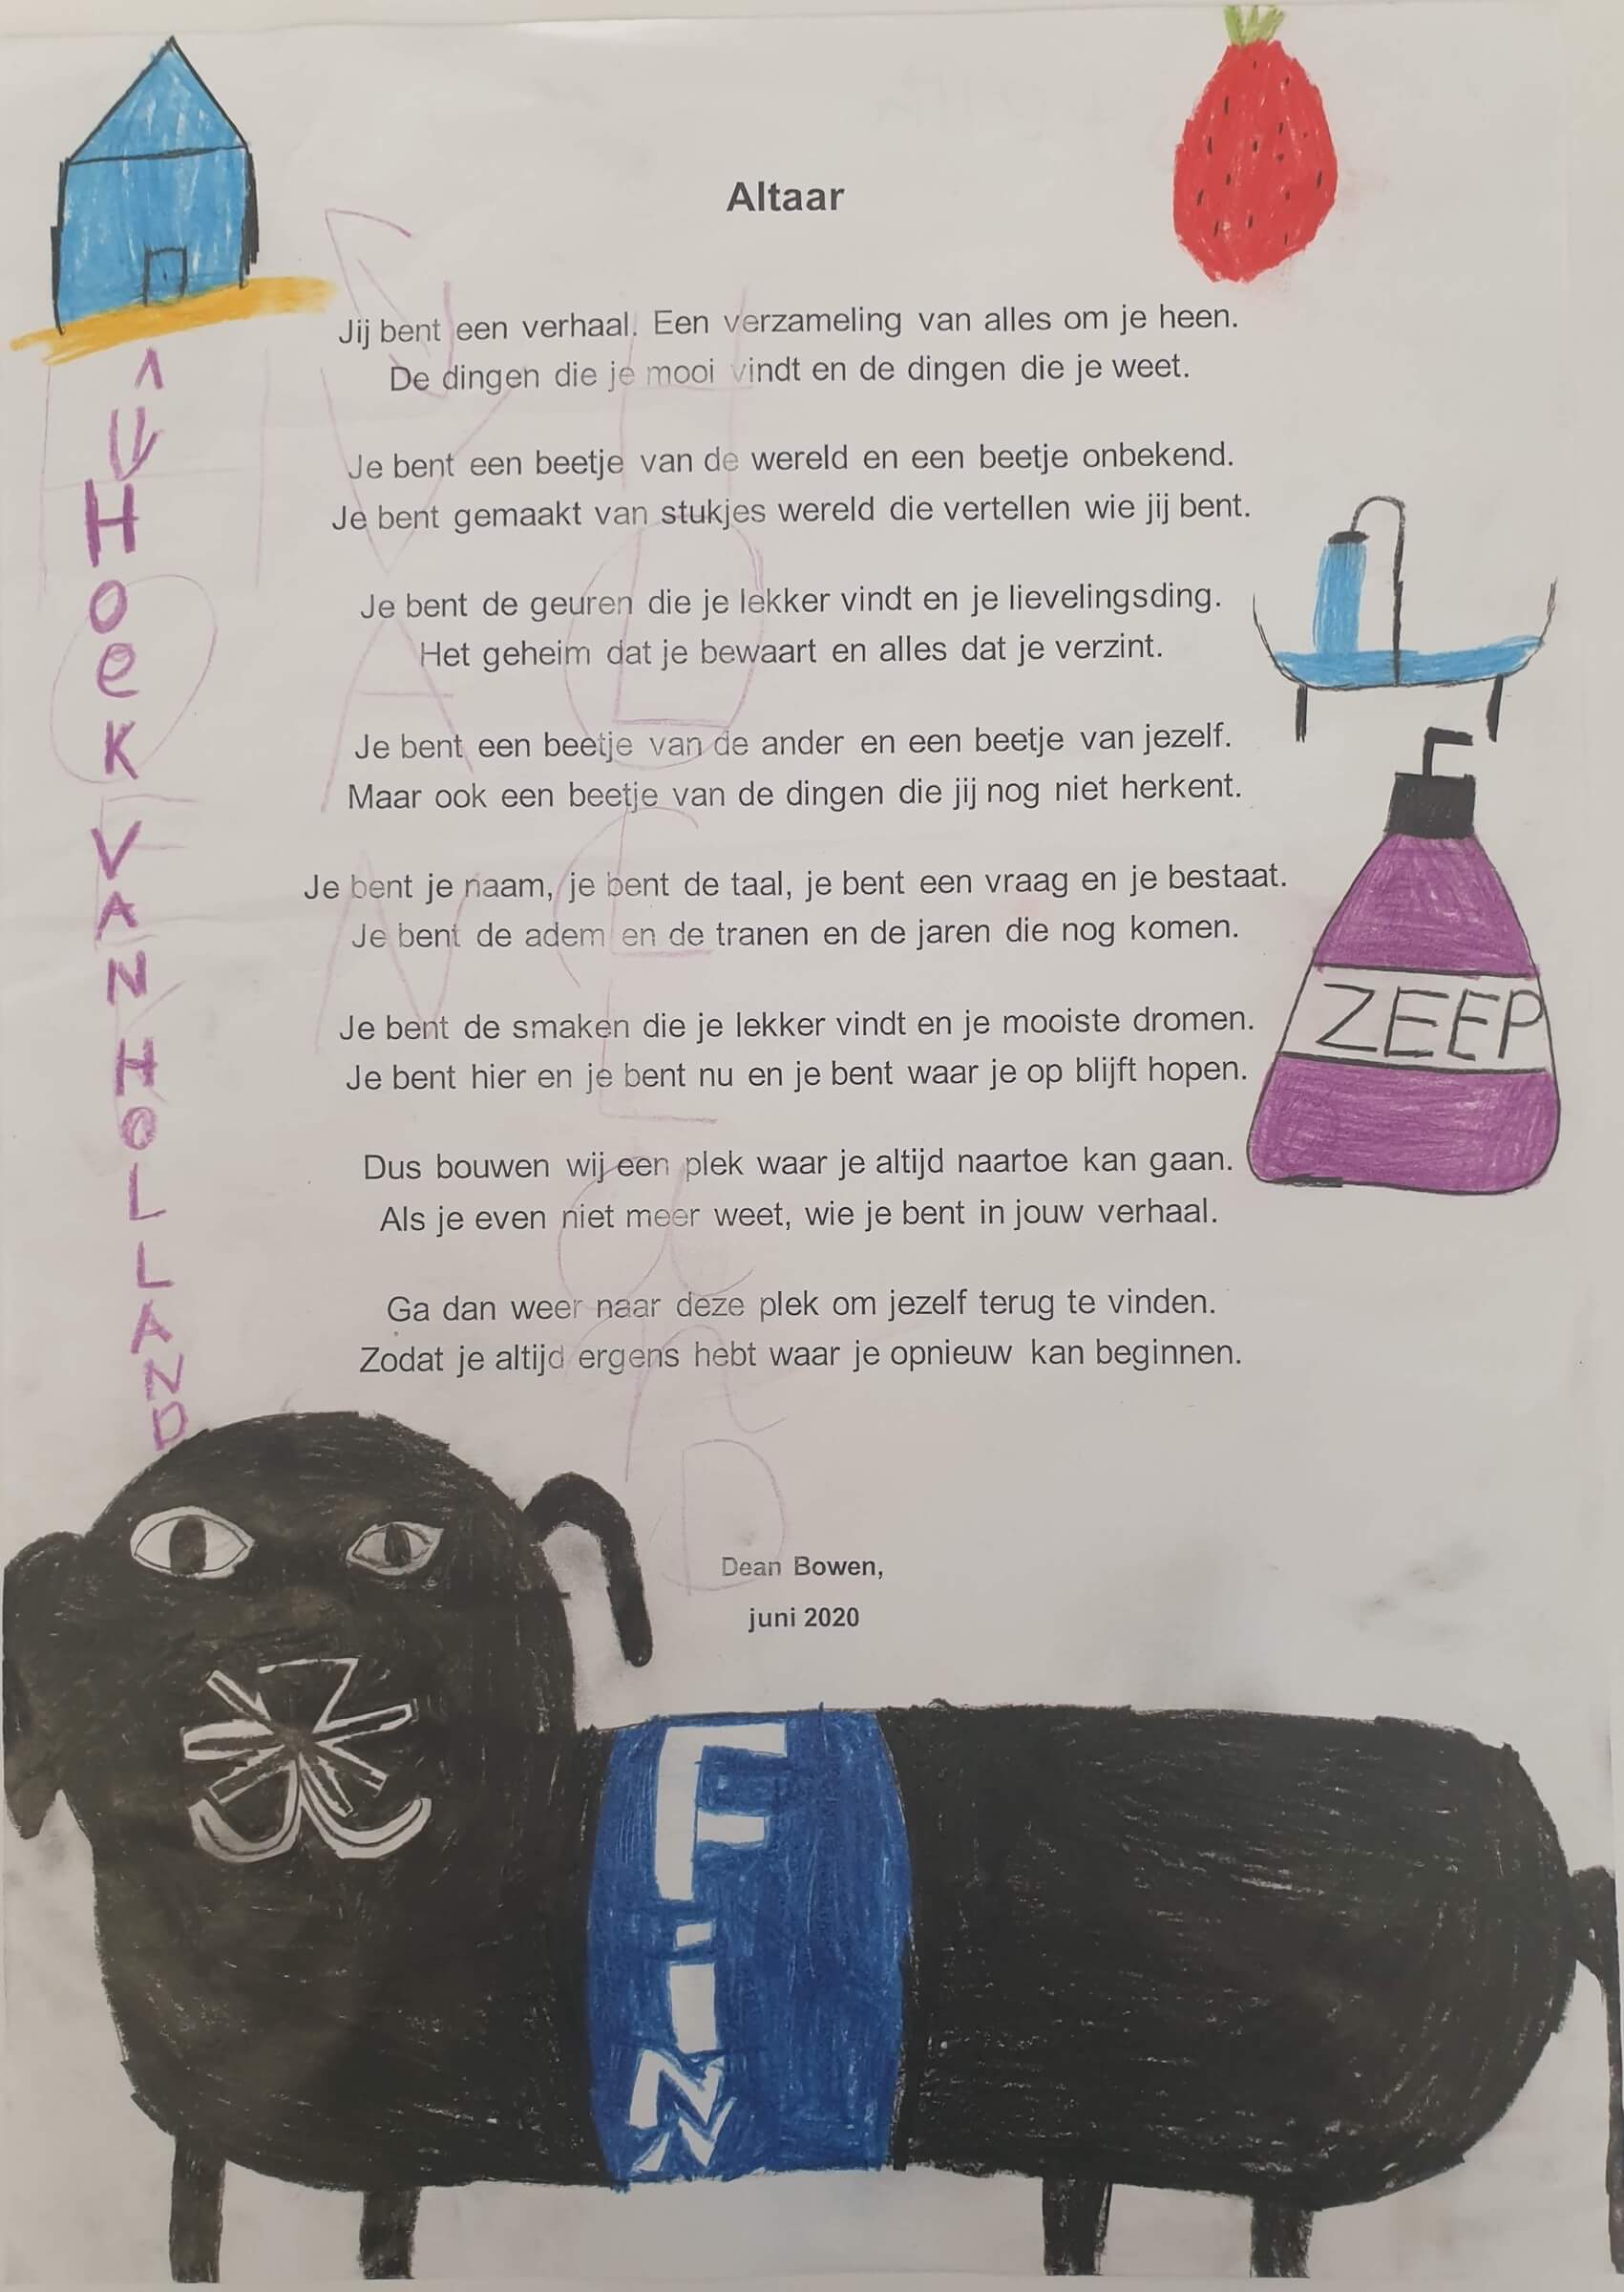 Altaar
Jij bent een verhaal. Een verzameling van alles om je heen.
De dingen die je mooi vindt en de dingen die je weet.
Je bent een beetje van de wereld en een beetje onbekend.
Je bent gemaakt van stukjes wereld die vertellen wie jij bent.
Je bent de geuren die je lekker vindt en je lievelingsding.
Het geheim dat je bewaart en alles dat je verzint.
Je bent een beetje van de ander en een beetje van jezelf.
Maar ook een beetje van de dingen die jij nog niet herkent.
Je bent je naam, je bent de taal, je bent een vraag en je bestaat.
Je bent de adem en de tranen en de jaren die nog komen.
Je bent de smaken die je lekker vindt en je mooiste dromen.
Je bent hier en je bent nu en je bent waar je op blijft hopen.
Dus bouwen wij een plek waar je altijd naartoe kan gaan.
Als je even niet meer weet, wie je bent in jouw verhaal.
Ga dan weer naar deze plek om jezelf terug te vinden.
Zodat je altijd ergens hebt waar je opnieuw kan beginnen.
Dean Bowen,
juni 2020
HoeK VAN HOLLAND
ZEEP
FiN